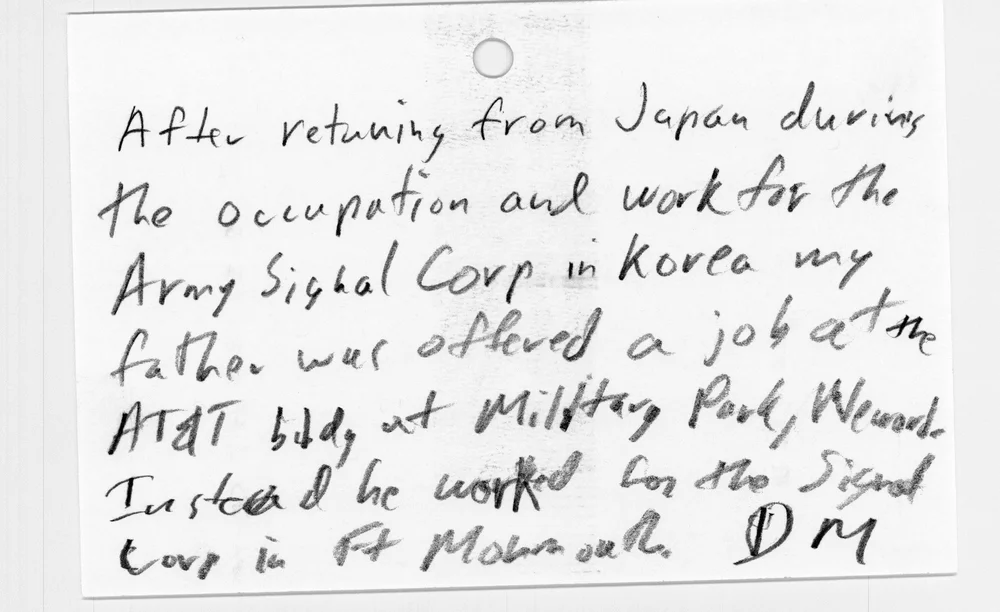 After retuning from Japan during
the occupation and work for the
Army Signal Corp in Korea my
father was offered a job at the
AT&T bldg at Military Park, Newark.
Instead he worked for the Signal
Corp in Ft Monmouth. DM